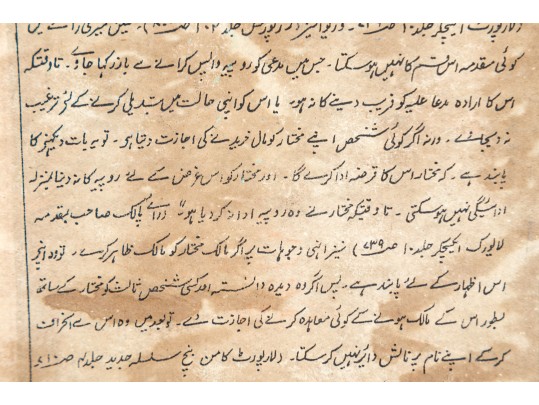 کوئی مقدمہ اس قسم کا نہیں ہوسکتا ۔ جس میں مدعی کو روپیہ واپس کرانے سے باز رکھا جاوے ۔ تاوقتیکہ
اس کا ارادہ مدعا علیہ کو فریب دینے کا نہ ہو یا اس کو اپنی حالت میں تبدیلی کرنے کے لئے ترغیب
نہ دیجائے ۔ ورنہ اگر کوئی شخص اپنے مختار کو مال خریدنے کی اجازت دیتا ہو ۔ تو یہ بات دیکھنے کا
پابند ہے ۔ کہ مختار اس کا قرضہ ادا کرے گا ۔ اور مختار کو اس غرض کے لئے روپیہ کا نہ دینا بمنزلہ
ادائیگی نہیں ہوسکتی ۔ تاوقتیکہ مختار نے وہ روپیہ ادا نہ کردیا ہو" صاحب بمقدمہ
لارپورٹ ایکسچیکر جلد ۱۰ ص ۷۳۹) نیز انہی وجوہات پر اگر مالک مختار کو مالک ظاہر کرے ۔ تو وہ اپنے
اس اظہار کے لئے پابند ہے ۔ پس اگر وہ دیدہ دانستہ اور کسی شخص ثالث کو مختار کے ساتھ
بطور اس کے مالک ہونے کے کوئی معاہدہ کرنے کی اجازت دے ۔ تو بعد میں وہ اس سے انحراف
کرکے اپنے نام پر نالش دائر نہیں کرسکتا ۔ (لارپورٹ کامن بنچ سلسلہ جدید جلد